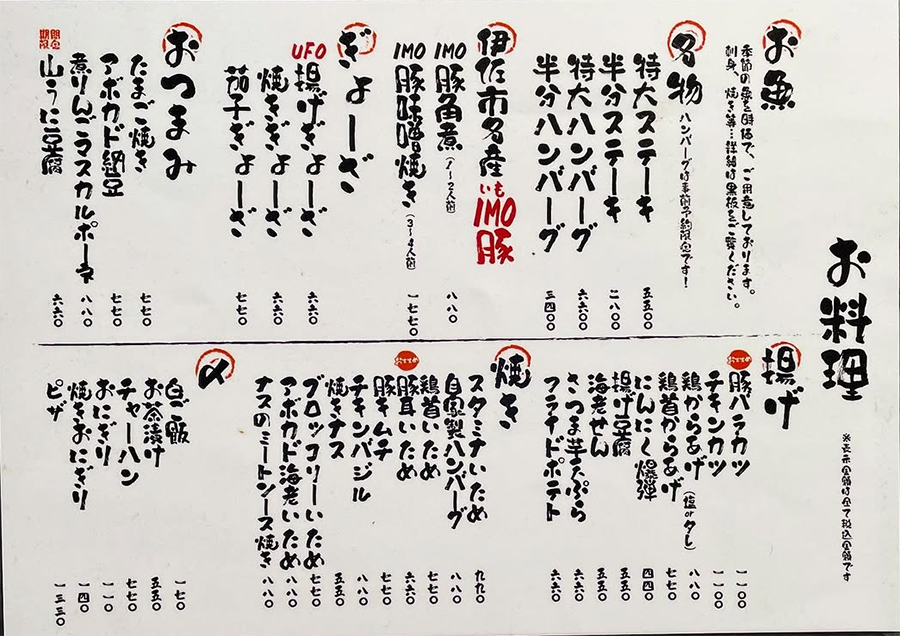 お料理
※表示金額は全て税込金額です
お魚
季節の魚を時価で、ご用意しております。
刺身、焼き等…詳細は黒板をご覧ください。
名物 ハンバーグは事前予約限定です!
特大ステーキ 五五〇〇
半分ステーキ 二八〇〇
特大ハンバーグ 六六〇〇
半分ハンバーグ 三四〇〇
伊佐市名産 いも IMO豚
IMO豚角煮(1〜2人前) 八八〇
IMO豚味噌焼き(3〜4人前) 一七七〇
ぎょーざ
UFO揚げぎょーざ 六六〇
焼きぎょーざ 六六〇
茄子ぎょーざ 七七〇
おつまみ
たまご焼き 七七〇
アボカド納豆 七七〇
煮りんごラスカルポーネ 八八〇
期間限定 山うに豆腐 六六〇
揚げ
おすすめ 豚バラカツ 一一〇〇
チキンカツ 一一〇〇
鶏からあげ 八八〇
鶏首からあげ(塩orタレ) 七七〇
にんにく爆弾 四四〇
揚げ豆腐 五五〇
海老せん 五五〇
さつま芋天ぷら 六六〇
フライドポテト 六六〇
焼き
スタミナいため 九九〇
自家製ハンバーグ 八八〇
鶏首いため 七七〇
おすすめ 豚耳いため 六六〇
豚キムチ 七七〇
チキンバジル 八八〇
焼きナス 五五〇
ブロッコリーいため 七七〇
アボカド海老いため 八八〇
ナスのミートソース焼き 八八〇
〆
白ご飯 一七〇
お茶漬け 五五〇
チャーハン 七七〇
おにぎり 一一〇
焼きおにぎり 一四〇
ピザ 一三三〇